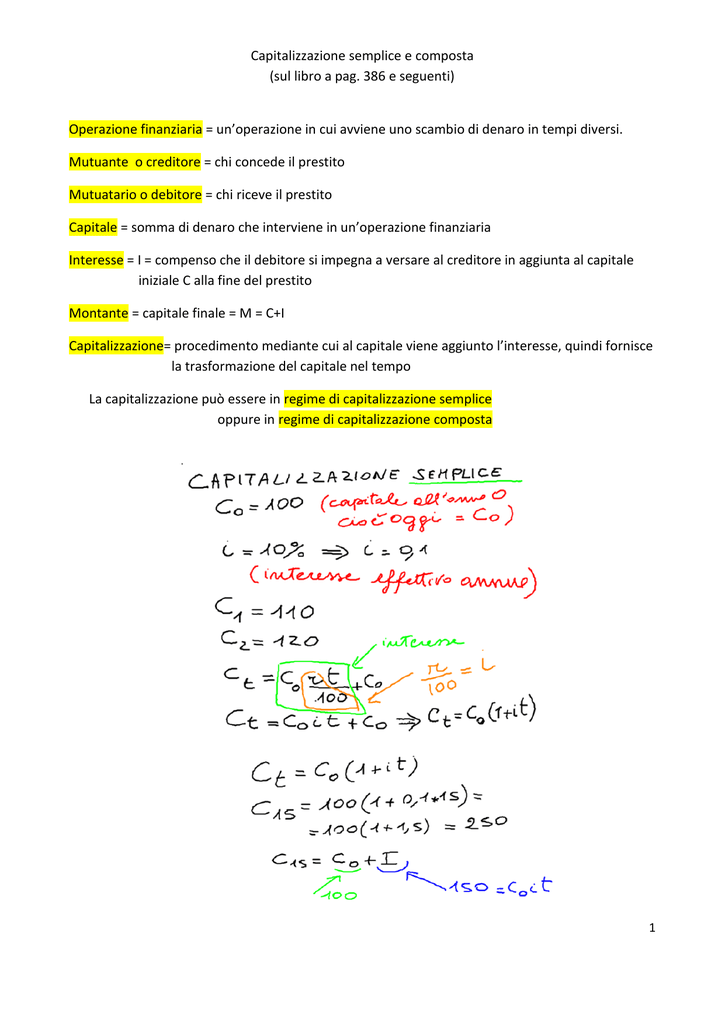 Capitalizzazione semplice e composta
(sul libro a pag. 386 e seguenti)
Operazione finanziaria = un’operazione in cui avviene uno scambio di denaro in tempi diversi.
Mutuante o creditore = chi concede il prestito
Mutuatario o debitore = chi riceve il prestito
Capitale = somma di denaro che interviene in un’operazione finanziaria
Interesse = I = compenso che il debitore si impegna a versare al creditore in aggiunta al capitale
iniziale C alla fine del prestito
Montante = capitale finale = M = C+I
Capitalizzazione= procedimento mediante cui al capitale viene aggiunto l’interesse, quindi fornisce
la trasformazione del capitale nel tempo
La capitalizzazione può essere in regime di capitalizzazione semplice
oppure in regime di capitalizzazione composta
CAPITALIZZAZIONE SEMPLICE
C₀ = 100 (capitale all'anno 0
cioè oggi = C₀)
i = 10% ⇒ i = 0,1
(interesse effettivo annuo)
C₁ = 110
C₂ = 120 interesse
Cₜ = C₀ rt/100 + C₀ r/100 = i
Cₜ = C₀it + C₀ ⇒ Cₜ = C₀(1+it)
Cₜ = C₀(1+it)
C₁₅ = 100(1+0,1*15) =
= 100(1+1,5) = 250
C₁₅ = C₀ + I
100 150 = C₀it
1